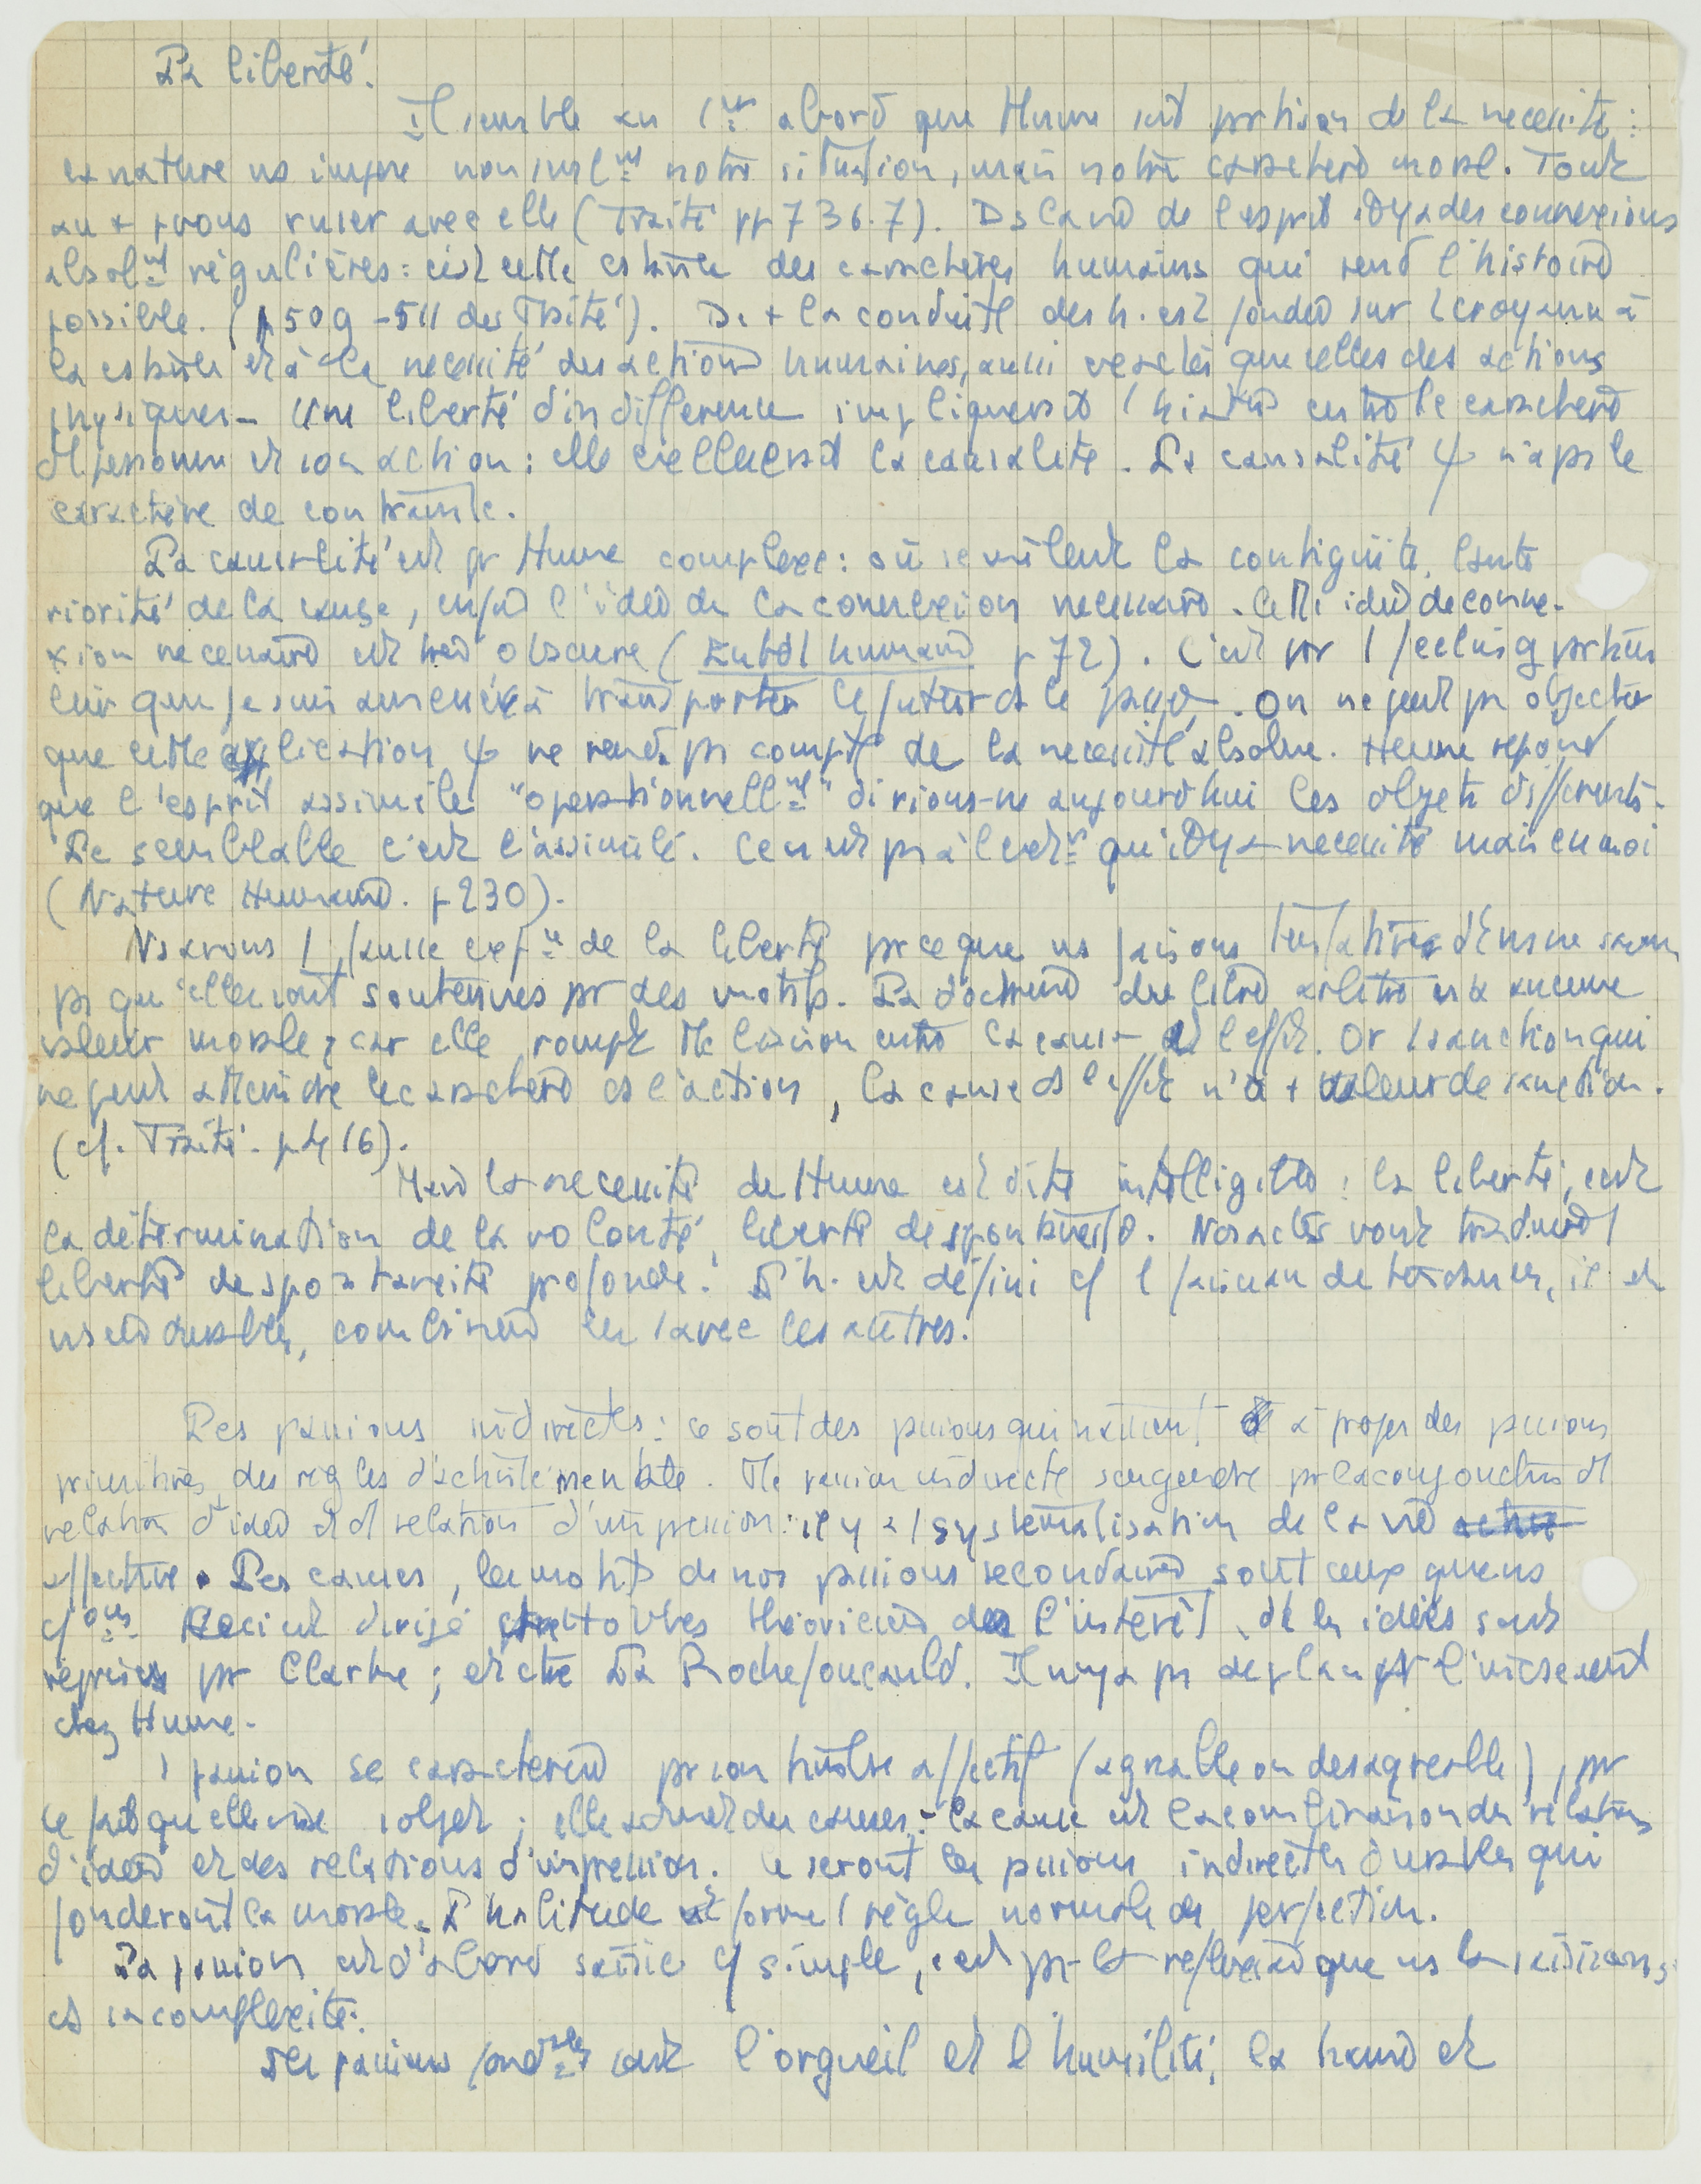 La liberté.
Il semble au 1er abord que Hume soit partisan de la necessité :
la nature ns impose non seulmt notre situation, mais notre caractère moral. Tout
au + pvons ruser avec elle (Traité pp 736.7). Ds la vie de l'esprit il y a des connexions
absolmt régulières : c'est cette certitude des caractères humains qui rend l'histoire
possible. (p 509-511 des Traité). De + la conduite des h. est fondée sur l croyance à
la certitude et à la necessité des actions humaines, aussi exactes que celles des actions
physiques - Une liberté d'indifference impliquerait 1 hiatus entre le caractère
d1 personne et son action : elle excluerait la causalité. La causalité ψ n'a ps le
caractère de contrainte.
La causalité est pr Hume complexe : où se mêlent la contiguité, l'anté
riorité de la cause, enfin l'idée de la connexion necessaire. Cette idée de conne-
xion necessaire est très obscure (Entdt humain p 72). C'est par 1 feeling particu
lier que je suis amené à transporter le futur ds le passé. On ne peut ps objecter
que cette explication ψ ne rend ps compte de la necessité absolue. Hume repond
que l'esprit assimile "operationnellmt" dirions-ns aujourd'hui les objets differents.
Le semblable c'est l'assimilé. Ce n'est ps à l'extr qu'il y a necessité mais en moi
(Nature Humaine. p 230).
Ns avons 1 fausse expce de la liberté prce que ns faisons tentatives et ns ne savons
ps qu'elles sont soutenues pr des motifs. La doctrine du libre arbitre n'a aucune
valeur morale, car elle rompt tte liaison entre la cause et l'effet. Or 1 sanction qui
ne peut atteindre le caractère ds l'action, la cause ds l'effet n'a + valeur de sanction.
(cf. Traité. p 416).
Mais la necessité de Hume est dite intelligible : la liberté, c'est
la détermination de la volonté, liberté de spontanéité. Nos actes vont traduire 1
liberté de spontaneité profonde. L'h. est défini cf 1 faisceau de tendances, il en
use durables, combinées les 1 avec les autres.
Les passions indirectes : ce sont des passions qui naissent à propos des passions
primitives, des règles d'activité mentale. Tte passion indirecte s'engendre pr la conjonction d1
relation d'idée et d1 relation d'impression : il y a 1 systematisation de la vie
affective. Les causes, les motifs de nos passions secondaires sont ceux que ns
Ceci est dirigé contre Hobbes théoricien de l'intérêt, dt les idées sont
reprises pr Clarke ; et ctre La Rochefoucauld. Il n'y a ps de place pr l'
chez Hume.
1 passion se caractérise pr son timbre affectif (agreable ou desagreable), pr
le fait qu'elle vise 1 objet ; elle admet des causes. - la cause est la combinaison des relations
d'idées et des relations d'impression. Ce seront les passions indirectes durables qui
fonderont la morale. L'habitude forme 1 règle normale de perfection.
La passion est d'abord saisie cf simple, c'est pr la reflexion que ns la saisissons
ds sa complexité.
Les passions fondtales sont l'orgueil et l'humilité, la haine et